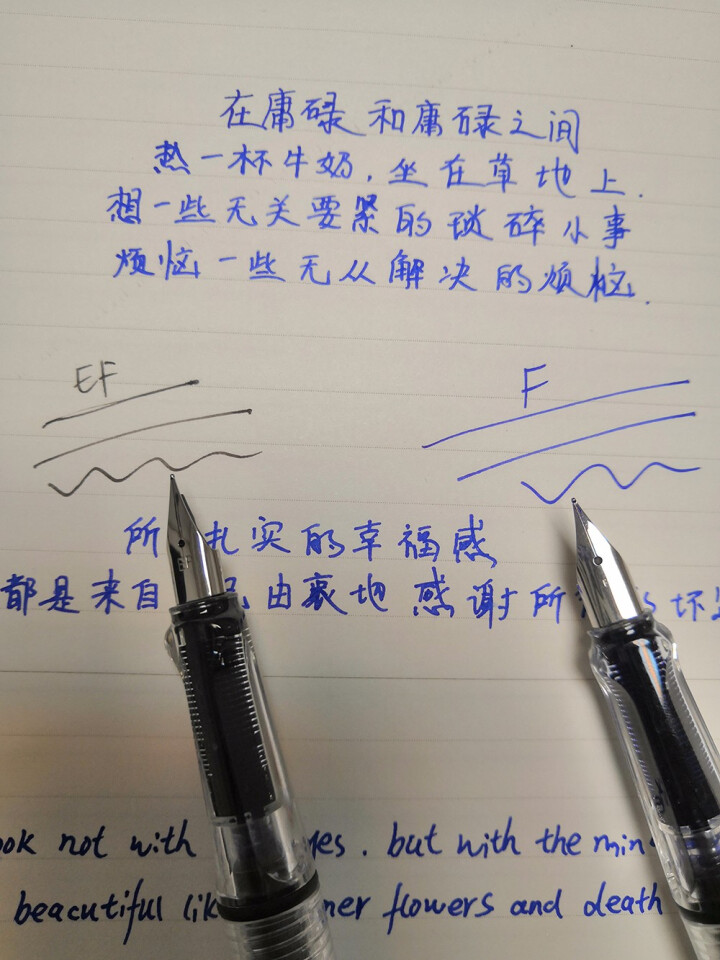 在庸碌和庸碌之间
热一杯牛奶,坐在草地上.
想一些无关要紧的琐碎小事
烦恼一些无从解决的烦恼.
EF
F
所 扎实的幸福感
都是来自 由衷地感谢所 坏
not with but with the
beacutiful flowers and death